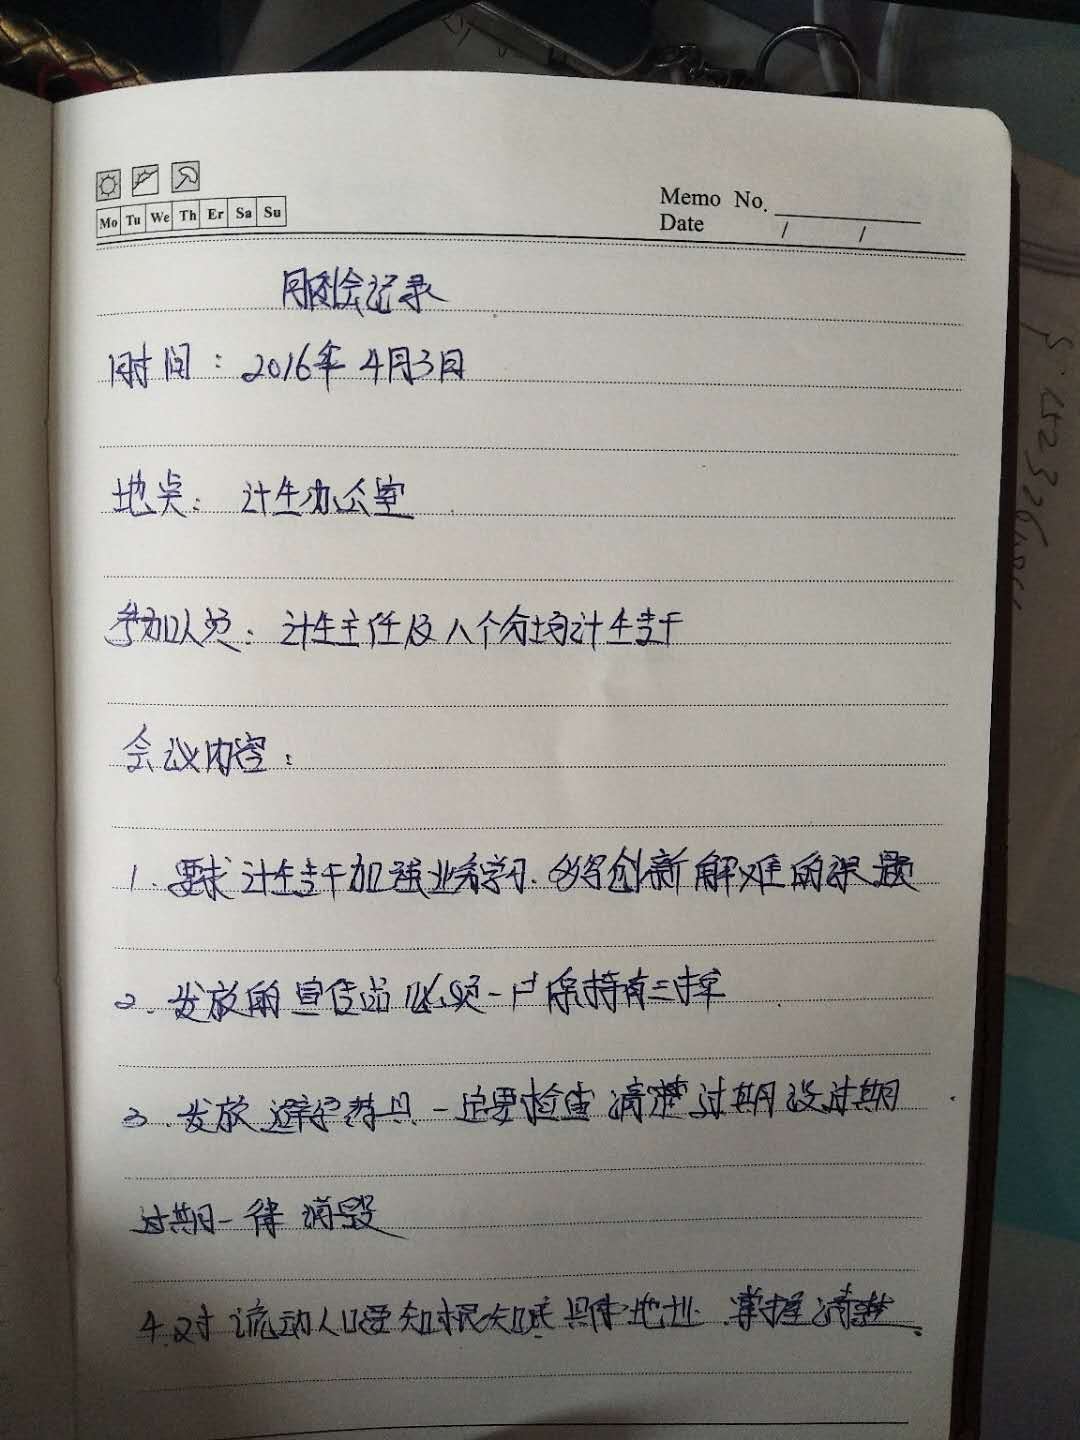 Mo Tu We Th Er Sa Su
Memo No.
Date / /
月例会记录
时间：2016年4月3日
地点：计生办公室
参加人员：计生主任及八个分场计生专干
会议内容：
1.要求计生专干加强业务学习.创新解难的课题
2.发放的宣传品必须一户保持有三样
3.发放避孕药具一定要检查清楚过期没过期
过期一律消毁
4.对流动人口要知根知底具体地址.掌握清楚.